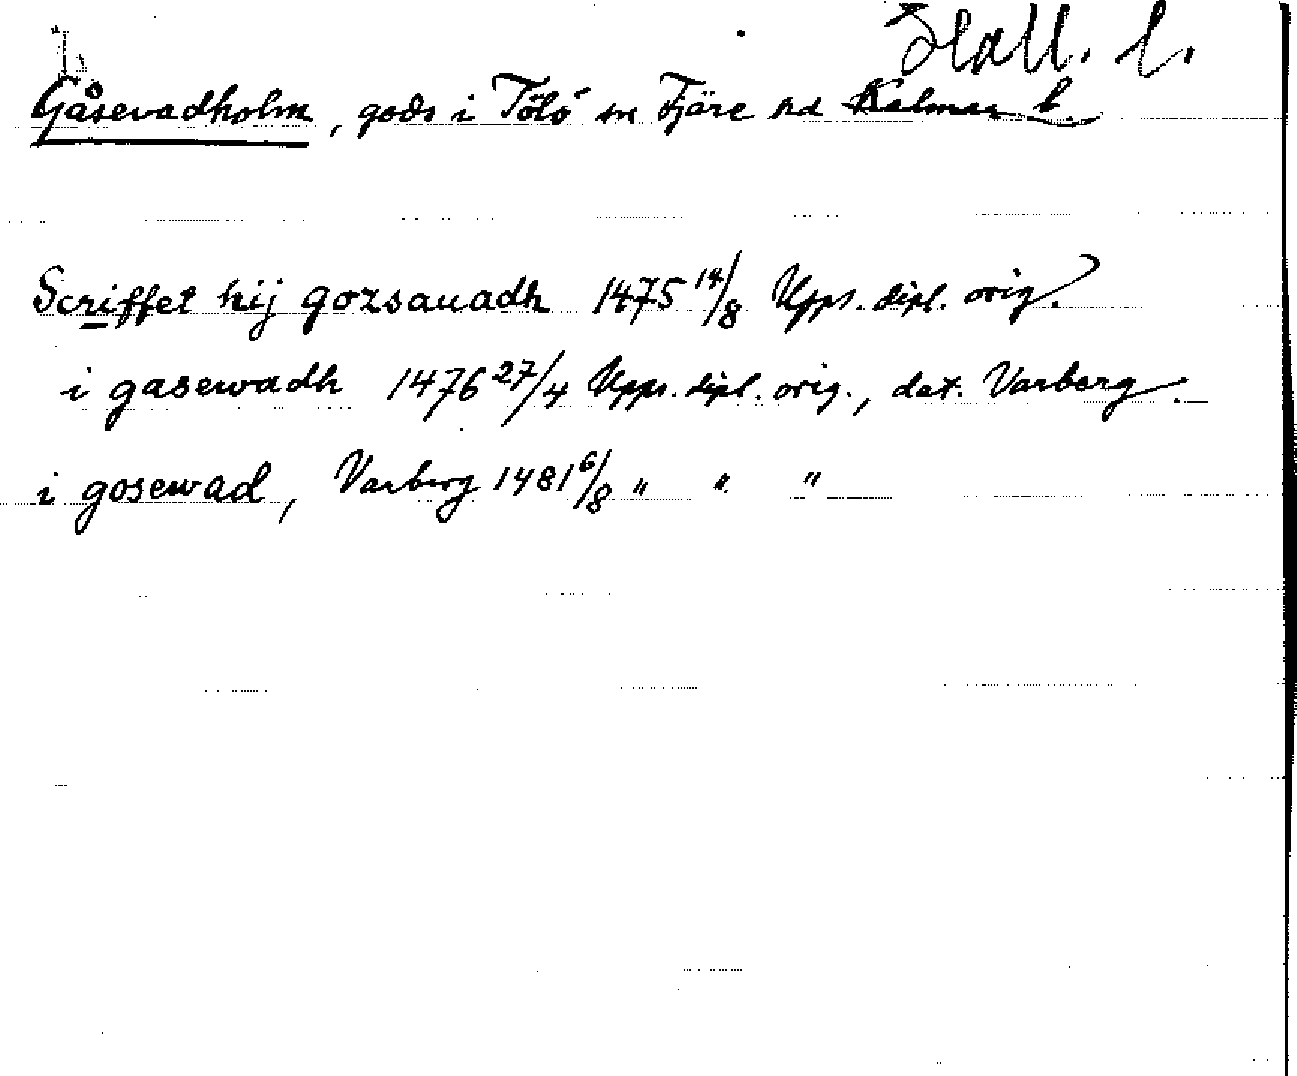 Hall. l.
Gåsevadholm, gods i Tölö sn Fjäre hd Kalmar l.
Scriffet hij gozsauadh 1475 14/8 Upps. dipl. orig.
i gasewadh 1476 27/4 Upps. dipl. orig., dat. Varberg.
i gosewad, Varberg 1481 6/8 " " "